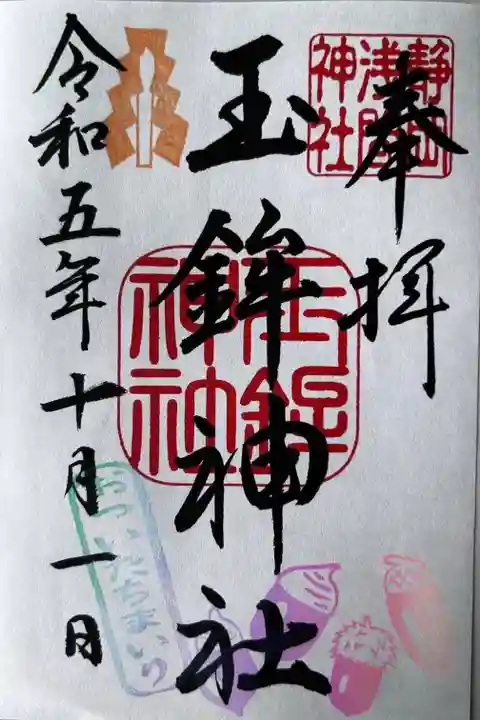 奉拝
静岡
浅間
神社
玉鉾神社
玉鉾
神社
令和五年十月一日
おついたちまいり